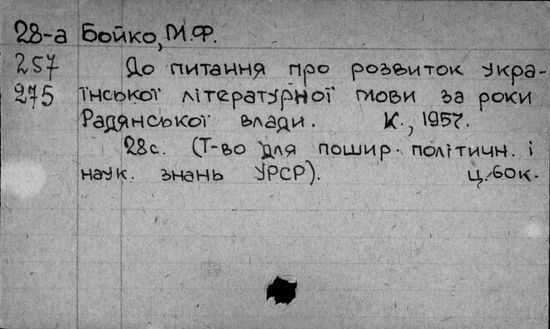 28-а Бойко, М.Ф.
257 До питання про розвиток укра-
275 їнської літературної мови за роки
Радянської влади. К., 1957.
28с. (Т-во для пошир. політичн. і
наук. знань УРСР). ц. 60к.